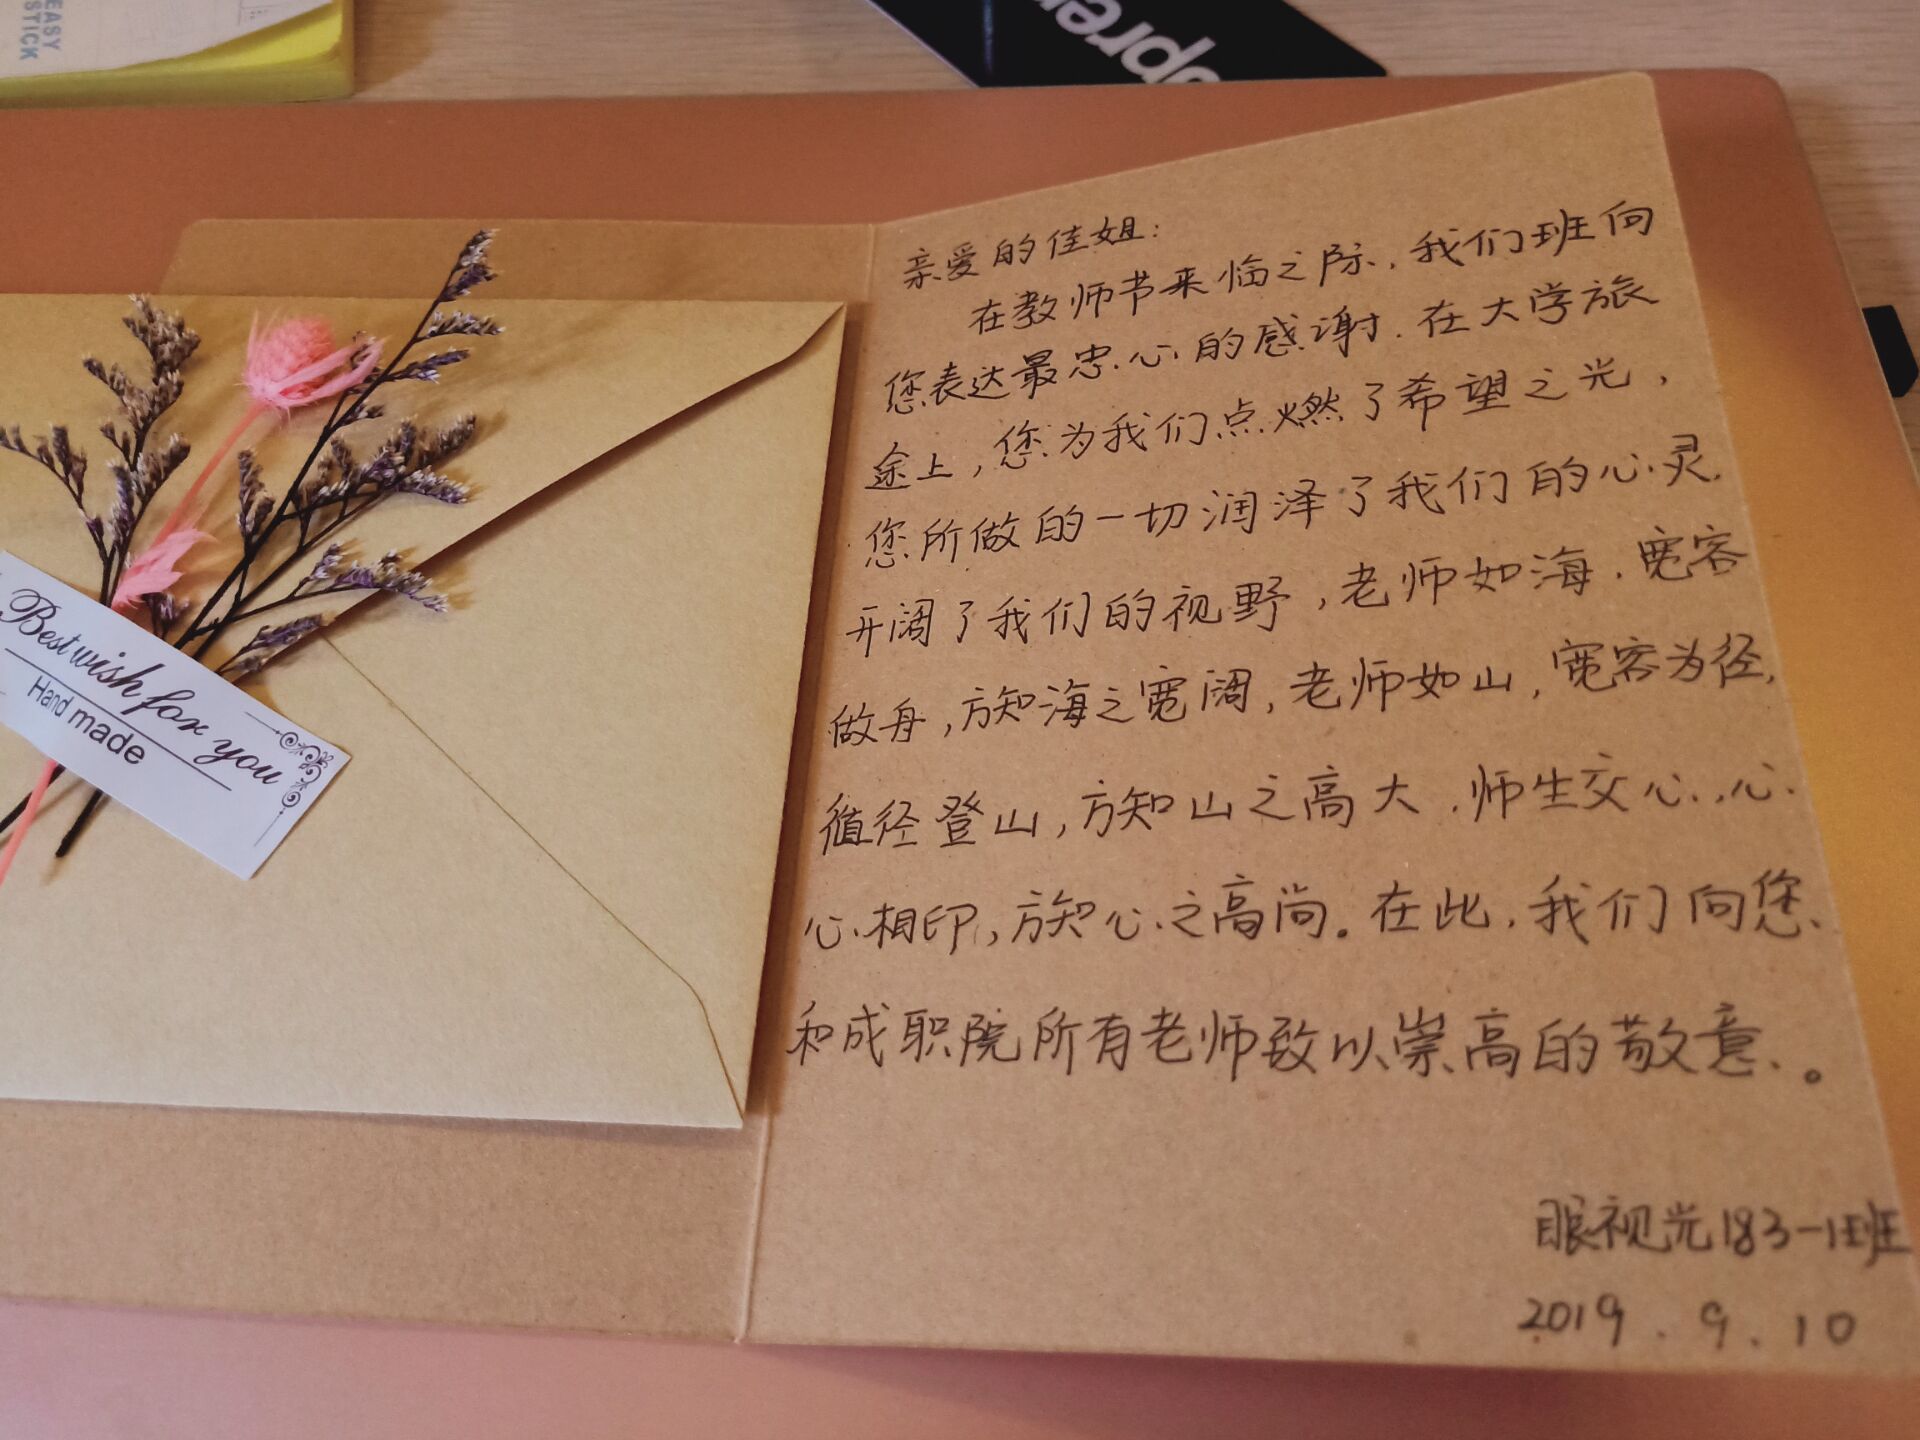 EASY
STICK
亲爱的佳姐：
在教师节来临之际，我们班向
您表达最忠心的感谢．在大学旅
途上，您为我们点燃了希望之光，
您所做的一切润泽了我们的心灵．
开阔了我们的视野，老师如海．宽容
做舟，方知海之宽阔，老师如山，宽容为径，
循径登山，方知山之高大．师生交心，心
心相印，方知心之高尚。在此，我们向您
和成职院所有老师致以崇高的敬意。
眼视光183-1班
2019.9.10
Best wish for you
Hand made